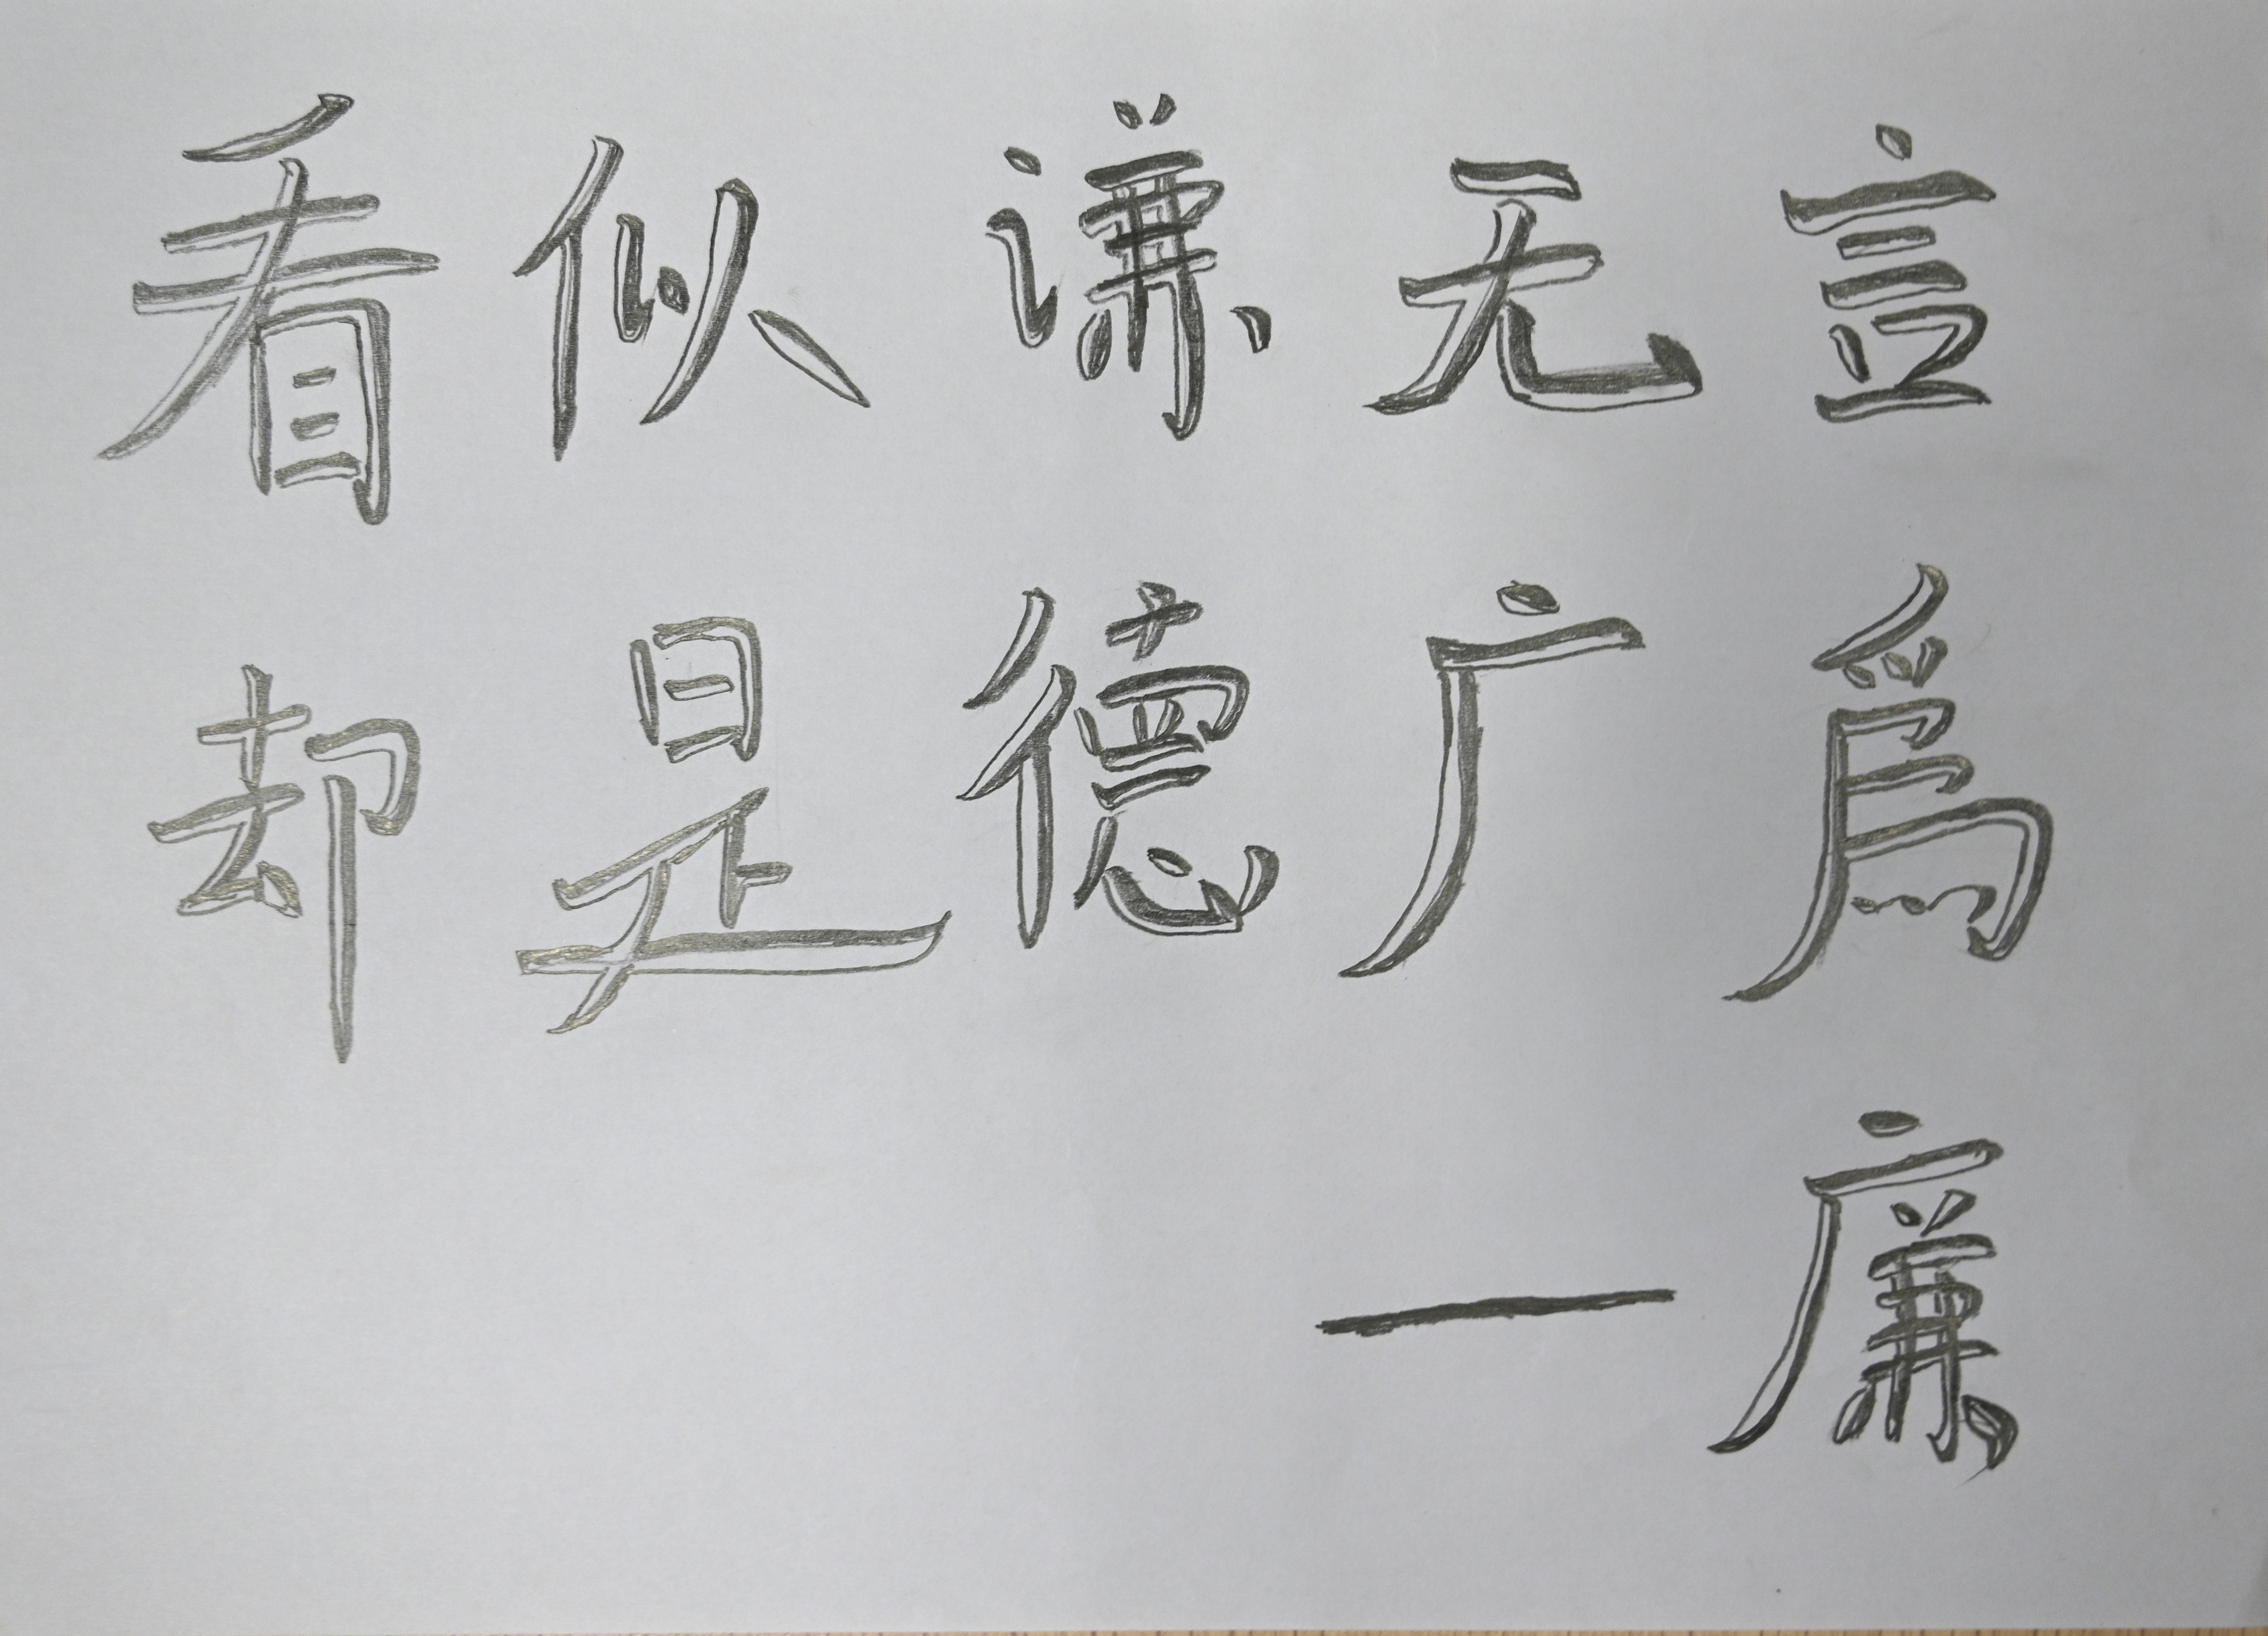 看似谦无言
却是德广爲
一廉